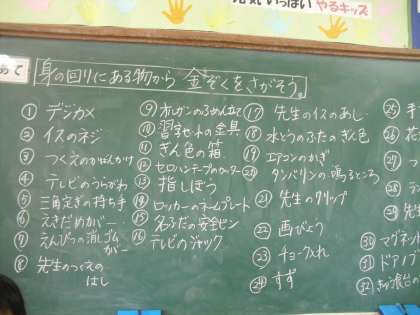 元気いっぱい やるキッズ
めあて
身の回りにある物から 金ぞくをさがそう。
① デジカメ
② イスのネジ
③ つくえのかばんかけ
④ テレビのうらがわ
⑤ 三角定ぎの持ち手
⑥ えきだめがー
⑦ えんぴつの消しゴム
がー
⑧ 先生のつくえの
はし
⑨ オルガンのふめん立て
⑩ 習字セットの金具
⑪ ぎん色の箱
⑫ セロハンテープのカッター
⑬ 指しぼう
⑭ ロッカーのネームプレート
⑮ 名ふだの安全ピン
⑯ テレビのジャック
⑰ 先生のイスのあし
⑱ 水とうのふたのぎん色
⑲ エアコンのかぎ
⑳ タンバリンの鳴るところ
㉑ 先生のクリップ
㉒ 画びょう
㉓ チョーク入れ
㉔ すず
㉕ 手
㉖
㉗
㉘
㉙ 先
㉚ マグネット
㉛ ドアノブ
㉜